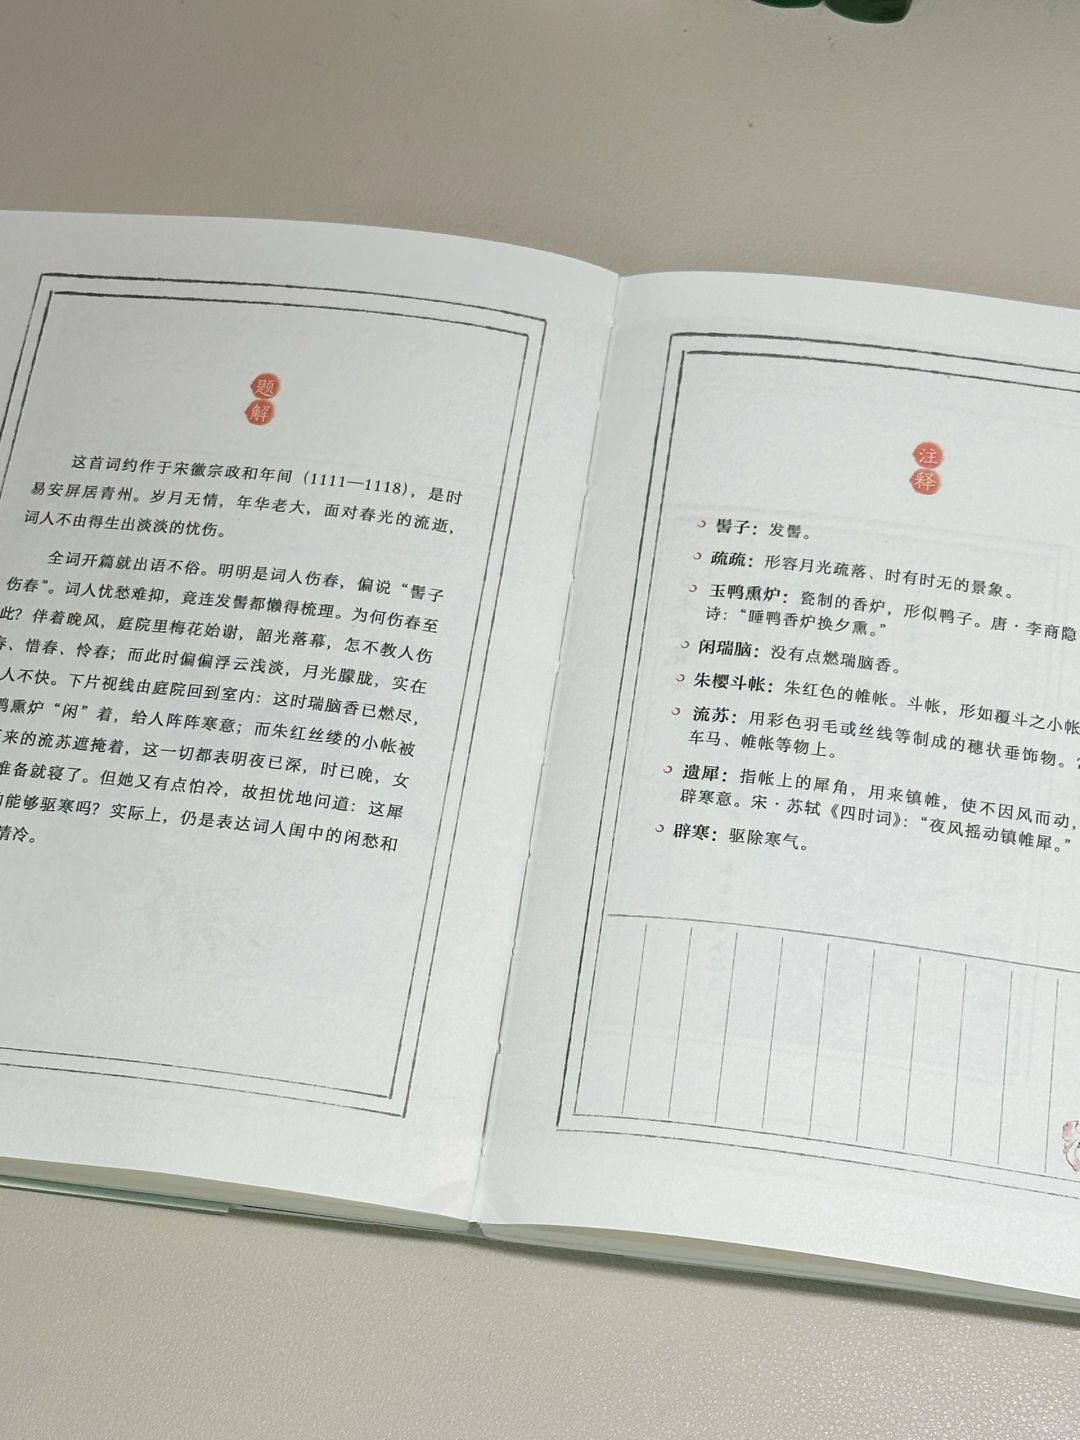 题解
这首词约作于宋徽宗政和年间（1111—1118），是时
易安屏居青州。岁月无情，年华老大，面对春光的流逝，
词人不由得生出淡淡的忧伤。
全词开篇就出语不俗。明明是词人伤春，偏说“髻子
伤春”。词人忧愁难抑，竟连发髻都懒得梳理。为何伤春至
此？伴着晚风，庭院里梅花始谢，韶光落幕，怎不教人伤
、惜春、怜春；而此时偏偏浮云浅淡，月光朦胧，实在
人不快。下片视线由庭院回到室内：这时瑞脑香已燃尽，
鸭熏炉“闲”着，给人阵阵寒意；而朱红丝缕的小帐被
来的流苏遮掩着，这一切都表明夜已深，时已晚，女
准备就寝了。但她又有点怕冷，故担忧地问道：这犀
能够驱寒吗？实际上，仍是表达词人闺中的闲愁和
清冷。
注释
髻子：发髻。
疏疏：形容月光疏落、时有时无的景象。
玉鸭熏炉：瓷制的香炉，形似鸭子。唐·李商隐
诗：“睡鸭香炉换夕熏。”
闲瑞脑：没有点燃瑞脑香。
朱樱斗帐：朱红色的帷帐。斗帐，形如覆斗之小帐
流苏：用彩色羽毛或丝线等制成的穗状垂饰物。
车马、帷帐等物上。
遗犀：指帐上的犀角，用来镇帷，使不因风而动，
辟寒意。宋·苏轼《四时词》：“夜风摇动镇帷犀。”
辟寒：驱除寒气。